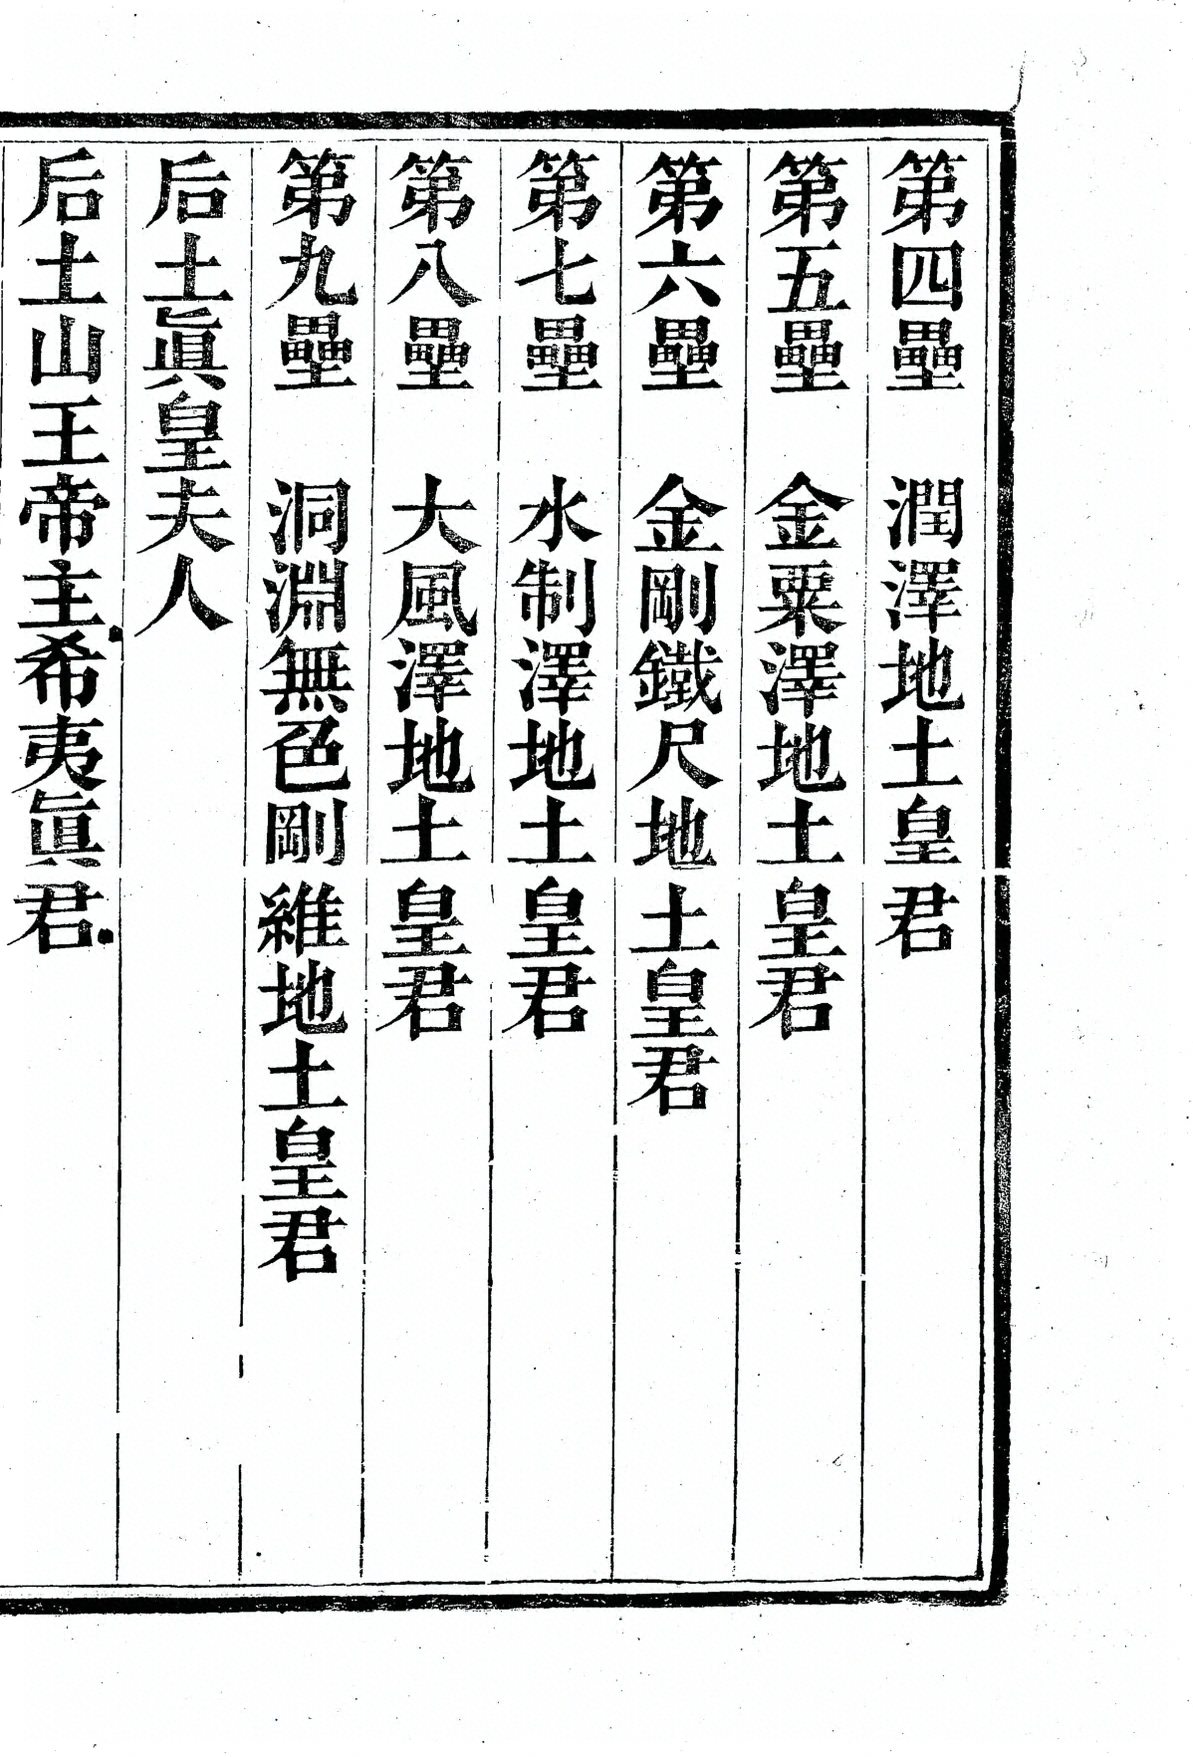 第四壘　潤澤地土皇君
第五壘　金粟澤地土皇君
第六壘　金剛鐵尺地土皇君
第七壘　水制澤地土皇君
第八壘　大風澤地土皇君
第九壘　洞淵無色剛維地土皇君
后土眞皇夫人
后土山王帝主希夷眞君